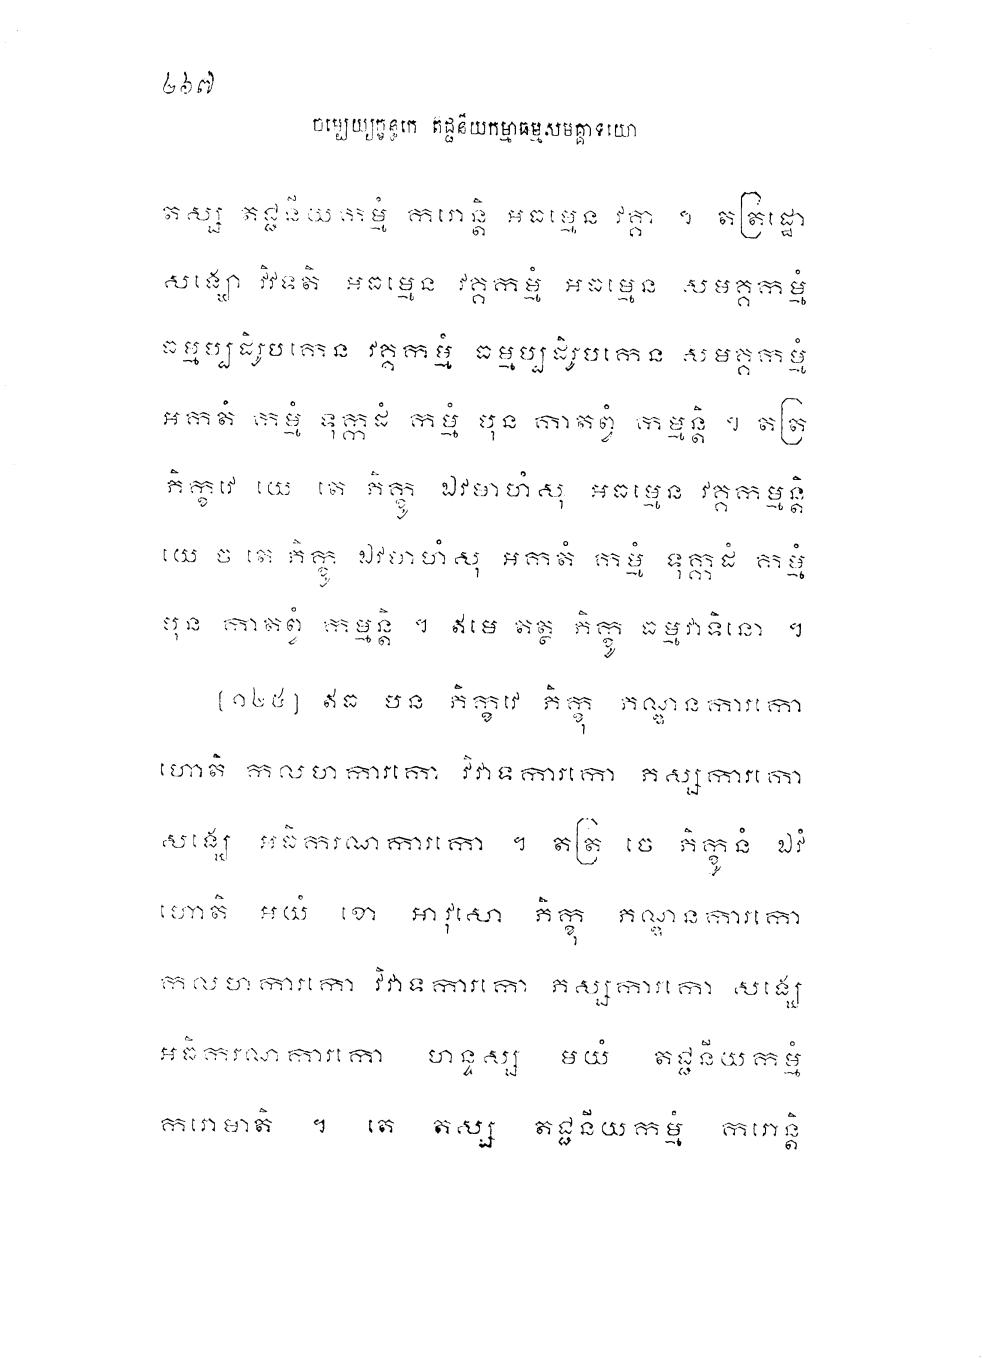 ៤៦៧
ចម្បេយ្យក្ខន្ធកេ តជ្ជនីយកម្មាធម្មសមគ្គាទយោ
តស្ស តជ្ជនីយកម្មំ ករោន្តិ អធម្មេន វគ្គា ។ តត្រដ្ឋោ
សង្ឃោ វិវទតិ អធម្មេន វគ្គកម្មំ អធម្មេន សមគ្គកម្មំ
ធម្មប្បដិរូបកេន វគ្គកម្មំ ធម្មប្បដិរូបកេន សមគ្គកម្មំ
អកតំ កម្មំ ទុក្កដំ កម្មំ បុន កាតព្វំ កម្មន្តិ ។ តត្រ
ភិក្ខវេ យេ តេ ភិក្ខូ ឯវមាហំសុ អធម្មេន វគ្គកម្មន្តិ
យេ ច តេ ភិក្ខូ ឯវមាហំសុ អកតំ កម្មំ ទុក្កដំ កម្មំ
បុន កាតព្វំ កម្មន្តិ ។ ឥមេ តត្ថ ភិក្ខូ ធម្មវាទិនោ ។
[១៤៥] ឥធ បន ភិក្ខវេ ភិក្ខុ ភណ្ឌនការកោ
ហោតិ កលហការកោ វិវាទការកោ ភស្សការកោ
សង្ឃេ អធិករណការកោ ។ តត្រ ចេ ភិក្ខូនំ ឯវំ
ហោតិ អយំ ខោ អាវុសោ ភិក្ខុ ភណ្ឌនការកោ
កលហការកោ វិវាទការកោ ភស្សការកោ សង្ឃេ
អធិករណការកោ ហន្ទស្ស មយំ តជ្ជនីយកម្មំ
ករោមាតិ ។ តេ តស្ស តជ្ជនីយកម្មំ ករោន្តិ